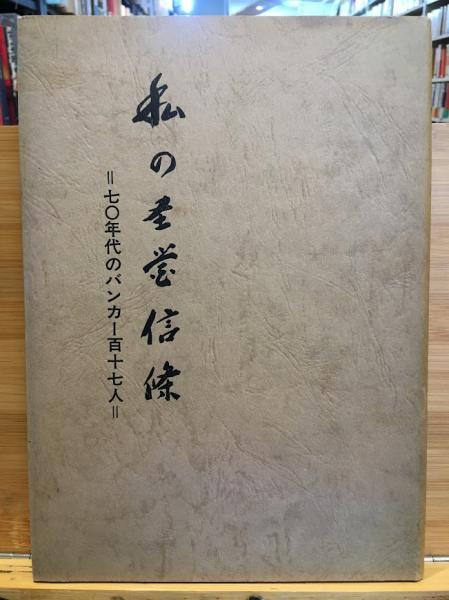 私の経営信條
＝七〇年代のバンカー百十七人＝